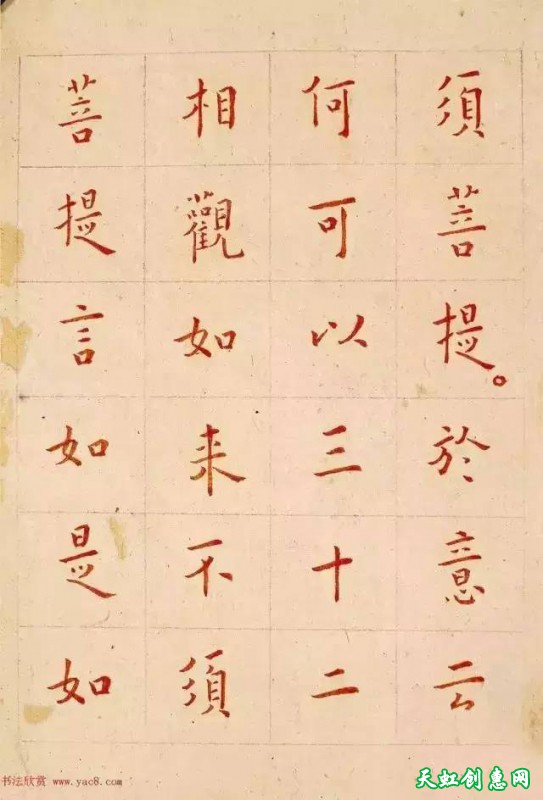 須菩提。於意云
何可以三十二
相觀如来不須
菩提言如是如
书法欣赏 www.yac8.com
天虹创惠网